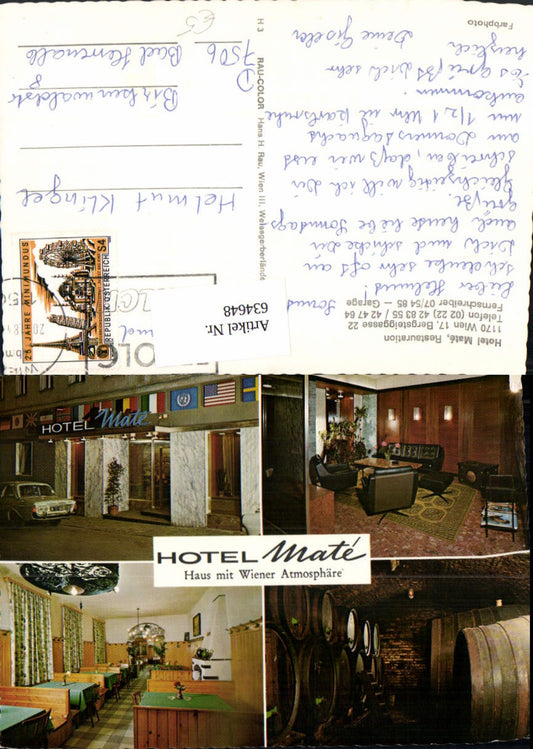 Hotel Maté, Restauration
1170 Wien 17, Bergsteiggasse 22
Telefon (02 22) 42 83 55 / 42 47 64
Fernschreiber 07/54 85 — Garage
Lieber Helmut!
ich denke sehr oft an
Dich und schicke Dir
auch heute liebe Sonntags-
grüße.
Gleichzeitig will ich Dir
schreiben, daß wir erst
am Donnerstag nachts
um 1/2 1 Uhr in Karlsruhe
ankommen.
Es grüßt Dich sehr
herzlich
Deine Gisela
Farbphoto
H 3 RAU-COLOR Hans H. Rau, Wien III, Weissgerberlände
Helmut Klinget
Birkenwaldstr
8
D
7506 Bad Herrenalb
25 JAHRE MINIMUNDUS
REPUBLIK ÖSTERREICH
S4
Artikel Nr.
634648
HOTEL Maté
HOTEL Maté
Haus mit Wiener Atmosphäre